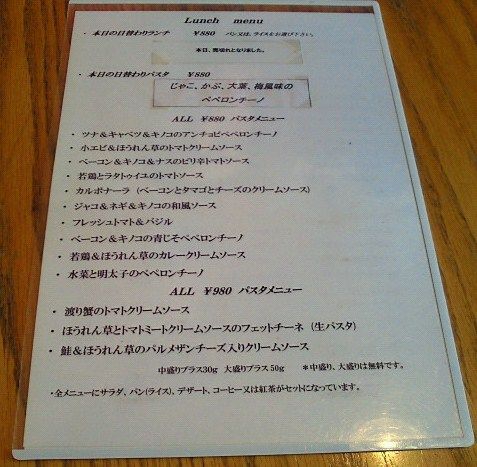 Lunch menu
・本日の日替わりランチ ￥880 パン又は、ライスをお選び下さい。
本日、売切れとなりました。
・本日の日替わりパスタ ￥880
じゃこ、かぶ、大葉、梅風味の
ペペロンチーノ
ALL ￥880 パスタメニュー
・ツナ＆キャベツ＆キノコのアンチョビペペロンチーノ
・小エビ＆ほうれん草のトマトクリームソース
・ベーコン＆キノコ＆ナスのピリ辛トマトソース
・若鶏とラタトゥイユのトマトソース
・カルボナーラ（ベーコンとタマゴとチーズのクリームソース）
・ジャコ＆ネギ＆キノコの和風ソース
・フレッシュトマト＆バジル
・ベーコン＆キノコの青じそペペロンチーノ
・若鶏＆ほうれん草のカレークリームソース
・水菜と明太子のペペロンチーノ
ALL ￥980 パスタメニュー
・渡り蟹のトマトクリームソース
・ほうれん草とトマトミートクリームソースのフェットチーネ（生パスタ）
・鮭＆ほうれん草のパルメザンチーズ入りクリームソース
中盛りプラス30g 大盛りプラス50g ＊中盛り、大盛りは無料です。
・全メニューにサラダ、パン(ライス)、デザート、コーヒー又は紅茶がセットになっています。